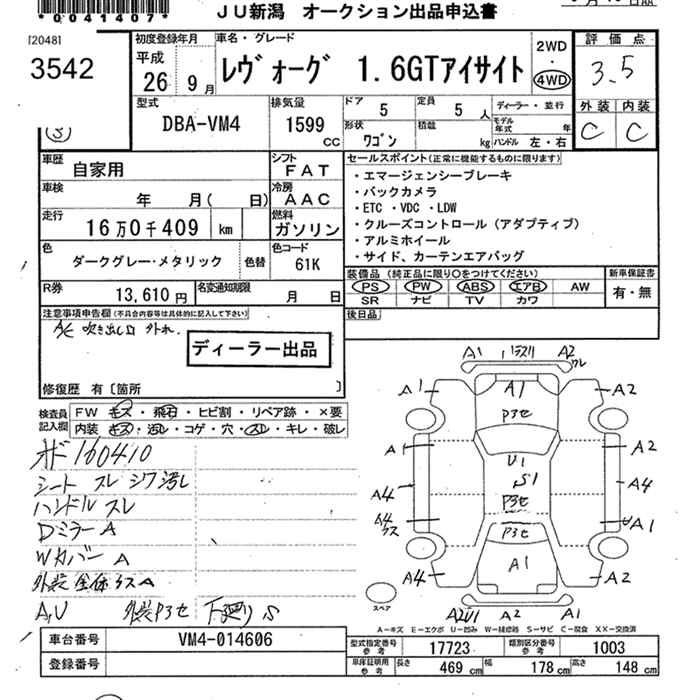 *0041407*
JU新潟 オークション出品申込書
[2048]
3542
初度登録年月
平成
26年 9月
車名・グレード
レヴォーグ 1.6GTアイサイト
2WD
・
4WD
評価点
3.5
外装 内装
C C
型式
DBA-VM4
排気量
1599
CC
ドア 5
定員 5人
ディーラー・並行
モデル年式 年
形状 ワゴン
積載 kg
ハンドル 左・右
3
車歴 自家用
シフト FAT
車検 年 月( 日)
冷房 AAC
走行 16万0千409 km
燃料 ガソリン
色 ダークグレー・メタリック 色替
色コード 61K
R券 13,610円
名変通知期限 月 日
セールスポイント(正常に機能するものに限ります)
・エマージェンシーブレーキ
・バックカメラ
・ETC ・VDC ・LDW
・クルーズコントロール (アダプティブ)
・アルミホイール
・サイド、カーテンエアバッグ
装備品 (純正品に限り○をつけてください)
PS PW ABS エアB AW
SR ナビ TV カワ
新車保証書
有・無
後日品
注意事項申告欄(不具合内容等は具体的に記入して下さい)
A/C 吹き出し口 外れ.
ディーラー出品
修復歴 有〔箇所 〕
検査員記入欄
FW キズ・飛石・ヒビ割・リペア跡・×要
内装 キズ・汚レ・コゲ・穴・スレ・キレ・破レ
オド160410
シート スレ シワ 汚レ
ハンドル スレ
Dミラー A
Wカバー A
外装 全体 クスA
A,U 外装P3セ 下廻りS
A1 A2
A1 A1 A2
P3セ
A1 A2
U1
S1
A4 A4
P3セ
A4 クス P3セ A1
A4 A1 A2
スペア
A2U1 A2 A1
A-キズ E-エクボ U-凹み W-補修跡 S-サビ C-腐食 XX-交換済
車台番号 VM4-014606
登録番号
型式指定番号 参考 17723
類別区分番号 参考 1003
車庫証明用 参考 長さ 469 cm 幅 178 cm 高さ 148 cm